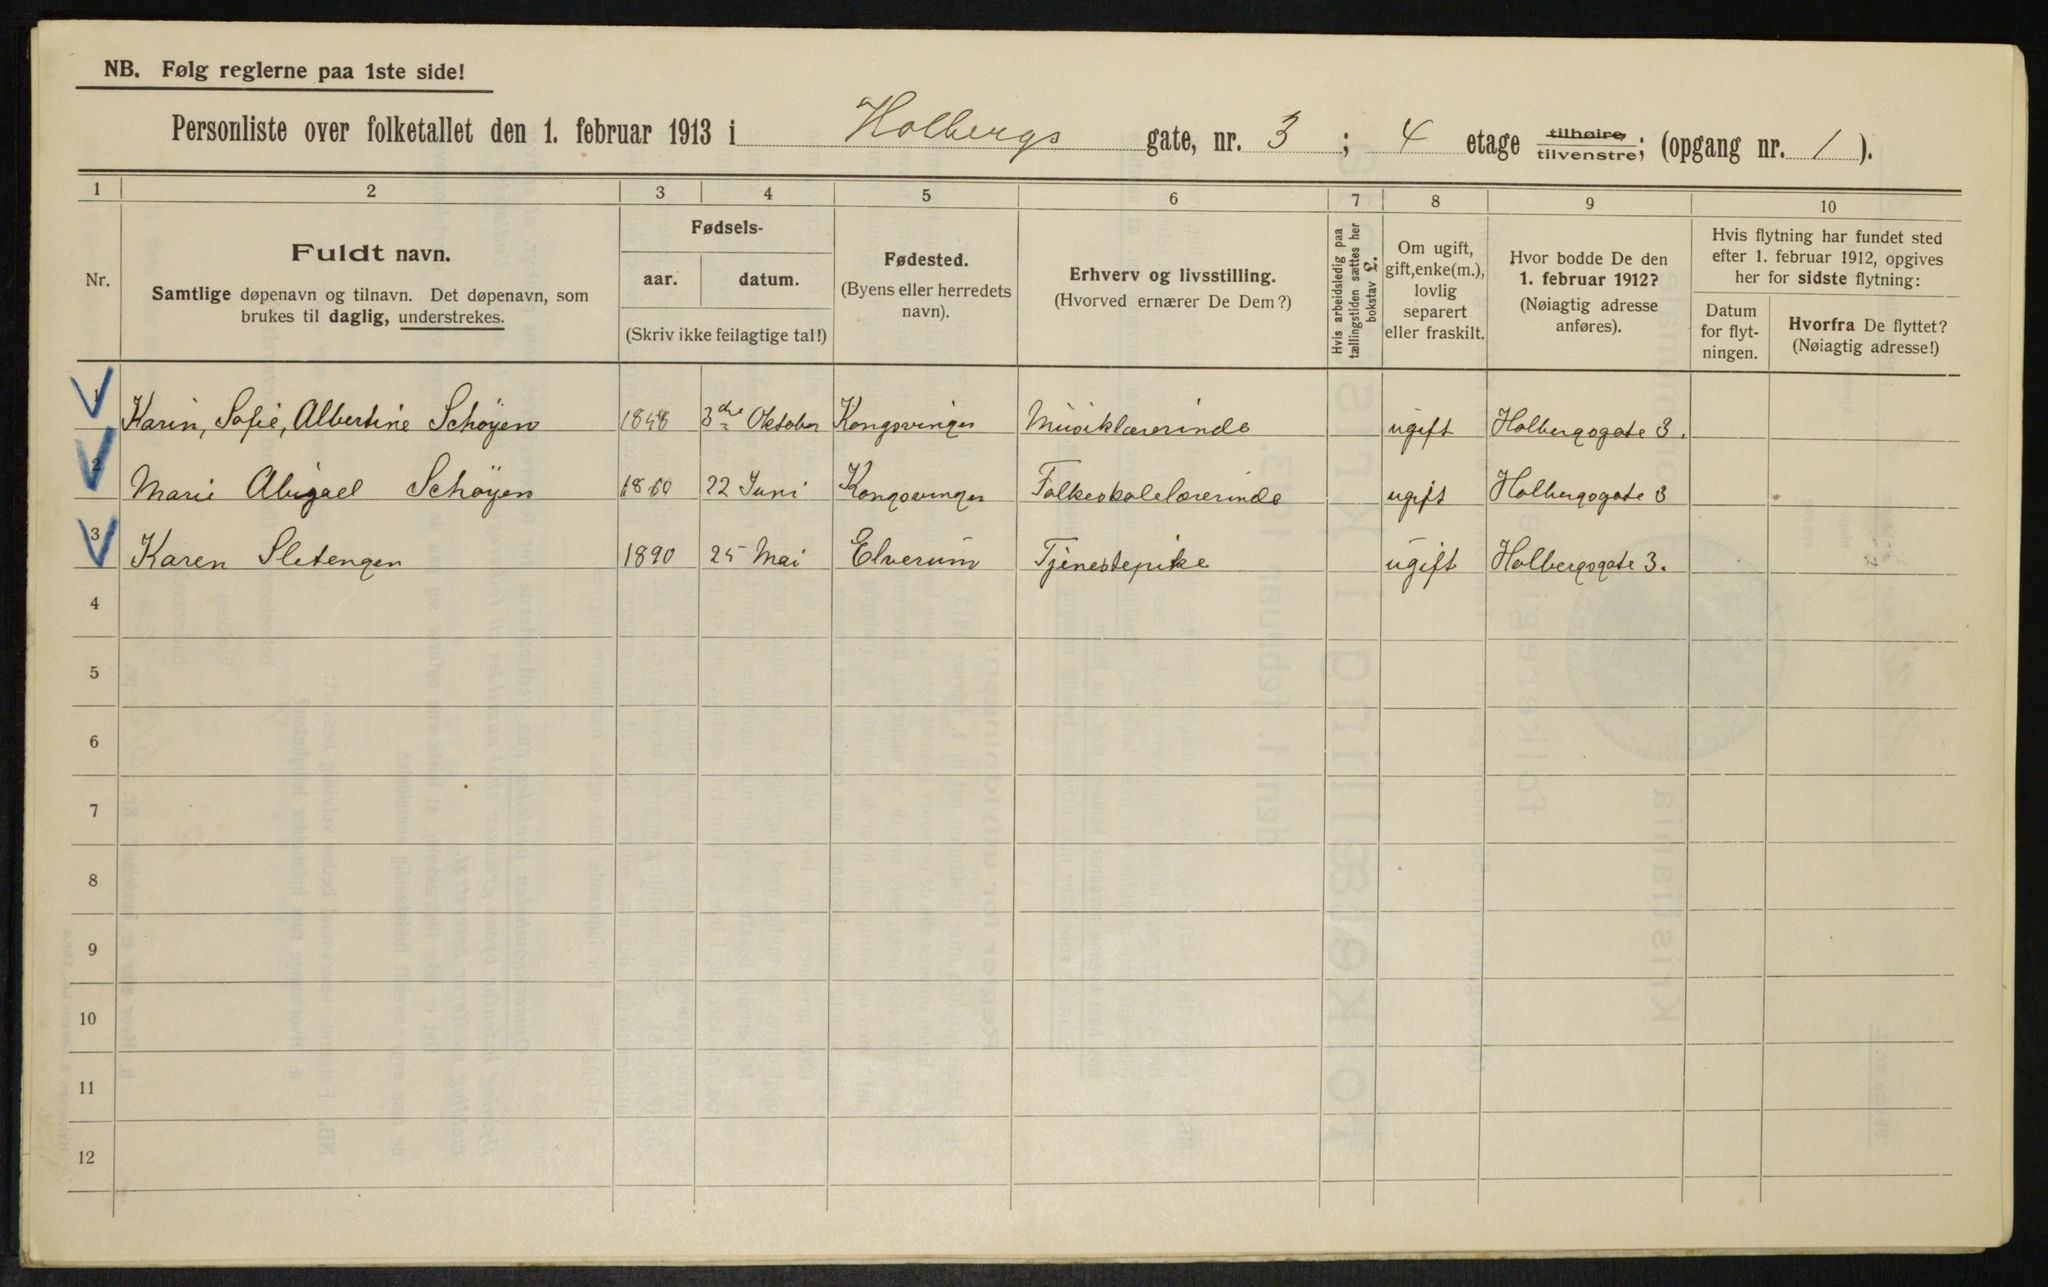 NB. Følg reglerne paa 1ste side!
Personliste over folketallet den 1. februar 1913 i Holbergs gate, nr. 3 ; 4 etage tilhøire, tilvenstre; (opgang nr. 1 ).
1 2 3 4 5 6 7 8 9 10
Nr.
Fuldt navn.
Samtlige døpenavn og tilnavn. Det døpenavn, som
brukes til daglig, understrekes.
Fødsels-
aar. datum.
(Skriv ikke feilagtige tal!)
Fødested.
(Byens eller herredets
navn).
Erhverv og livsstilling.
(Hvorved ernærer De Dem?)
Hvis arbeidsledig paa
tællingstiden sættes her
bokstav L.
Om ugift,
gift, enke(m.),
lovlig
separert
eller fraskilt.
Hvor bodde De den
1. februar 1912?
(Nøiagtig adresse
anføres).
Hvis flytning har fundet sted
efter 1. februar 1912, opgives
her for sidste flytning:
Datum
for flyt-
ningen.
Hvorfra De flyttet?
(Nøiagtig adresse!)
1 Karin, Sofie, Albertine Schøyen 1848 3die Oktober Kongsvinger Musiklærerinde ugift Holbergsgate 3.
2 Marie Abigael Schøyen 1860 22 Juni Kongsvinger Folkeskolelærerinde ugift Holbergsgate 3
3 Karen Sletengen 1890 25 Mai Elverum Tjenestepike ugift Holbergsgate 3.
4
5
6
7
8
9
10
11
12